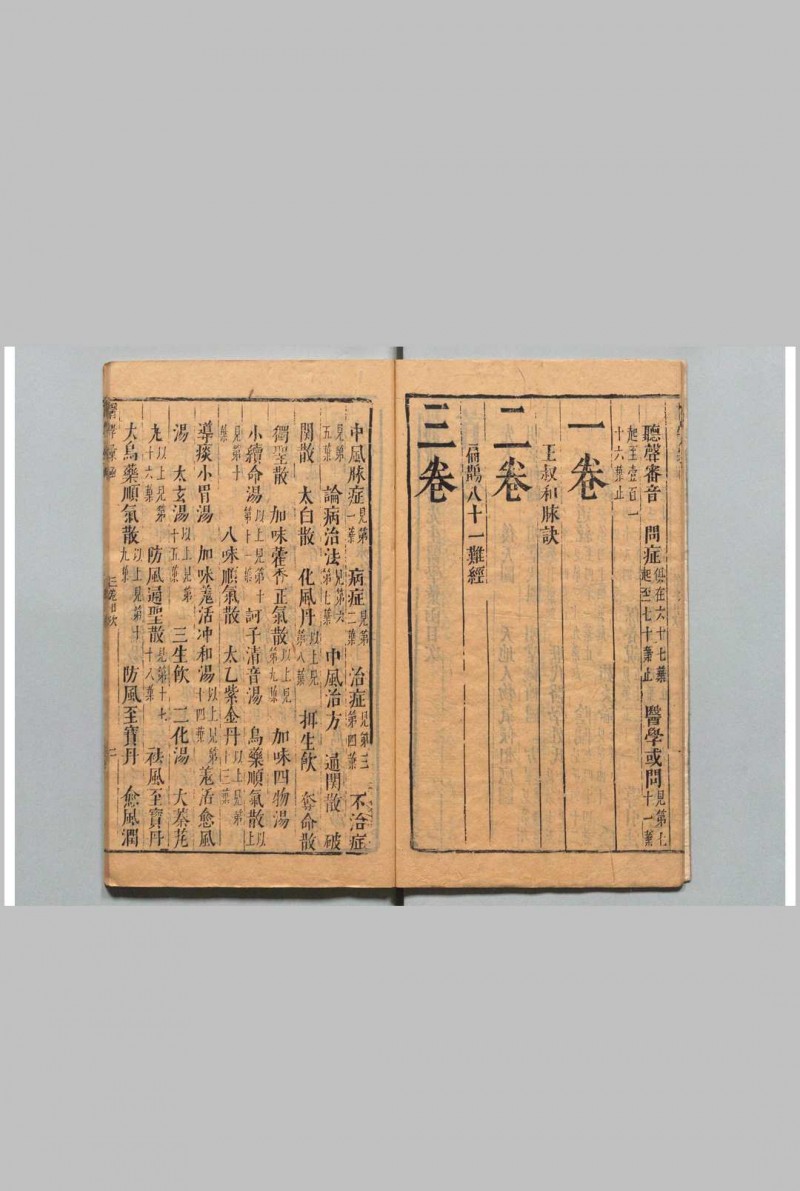 聽聲審音 問症俱在六十七葉起至七十葉止 醫學或問見第七十一葉
起至壹百一十六葉止
一卷
王叔和脉訣
二卷
扁鵲八十一難經
三卷
中風脉症見第一葉 病症見第二葉 治症見第三第四葉 不治症
見第五葉 論病治法見第六第七葉 中風治方 通関散 破
関散 太白散 化風丹以上見第八葉 挕生飲 奪命散
獨聖散 加味藿香正氣散以上見第九葉 加味四物湯
小續命湯以上見第十第十一葉 訶子清音湯 烏藥順氣散以上
見第十葉 八味順氣散 太乙紫金丹以上見第十三葉
導痰小胃湯 加味羗活冲和湯以上見第十四葉 羗活愈風
湯 太玄湯以上見第十五葉 三生飲 三化湯 大秦艽
九以上見第十六葉 防風通聖散見第十七十八葉 祛風至寶丹
大烏藥順氣散以上見第十九葉 防風至寶丹 愈風潤
三卷目次
二